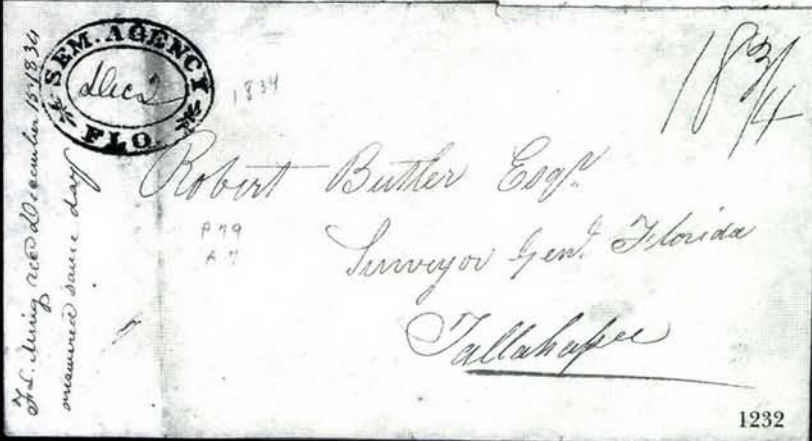 SEM. AGENCY
Dec 2
FLO.
1834
18 3/4
Robert Butler Esqr.
Surveyor Genl. Florida
Tallahassee
P79
A7
recd December 15 1834
answered same day
1232